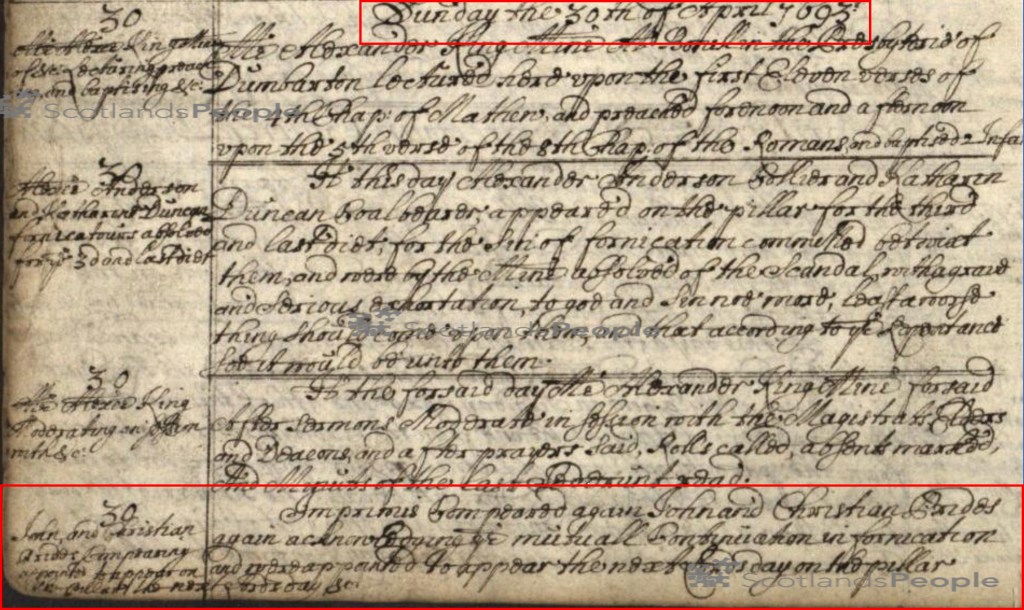 30
Sunday the 30th of April 1693.
Mr Alexander King Minr
Dumbarton lectured here upon the first Eleven verses of
the 4th Chap: of Mathew, and preached forenoon and afternoon
upon the 5th verse of the 8th Chap: of the Romans, and baptised 2 Infa
30
Alexr Anderson
and Katharin Duncan
fornicatours absolved
for ye 3d and last diet
It this day Alexander Anderson Collier and Katharin
Duncan Coalbearer, appeared on the pillar for the third
and last diet, for the Sin of fornication committed betwixt
them, and were by the Minr absolved of the Scandal, with a grave
and Serious exhortation, to goe and Sin noe more, least a worse
thing should come upon them, and that according to ye Repentance
Soe it would be unto them.
30
Mr Alexr King
Moderating in Session
It the forsaid day Mr Alexander King Minr forsaid
After Sermons Moderate in Session with the Magistrats, Elders
and Deacons, and after prayers Said, Rolls called, absents marked,
And Minuts of the last Sederunt read.
30
John, and Christian
Brides Compearing
appointed to appear on
the next Lords day &c:
Imprimis Compeared again John and Christian Brides
again acknowledging ye mutuall Continuation in fornication
and were appointed to appear the next Lords day on the pillar
ScotlandsPeople
ScotlandsPeople